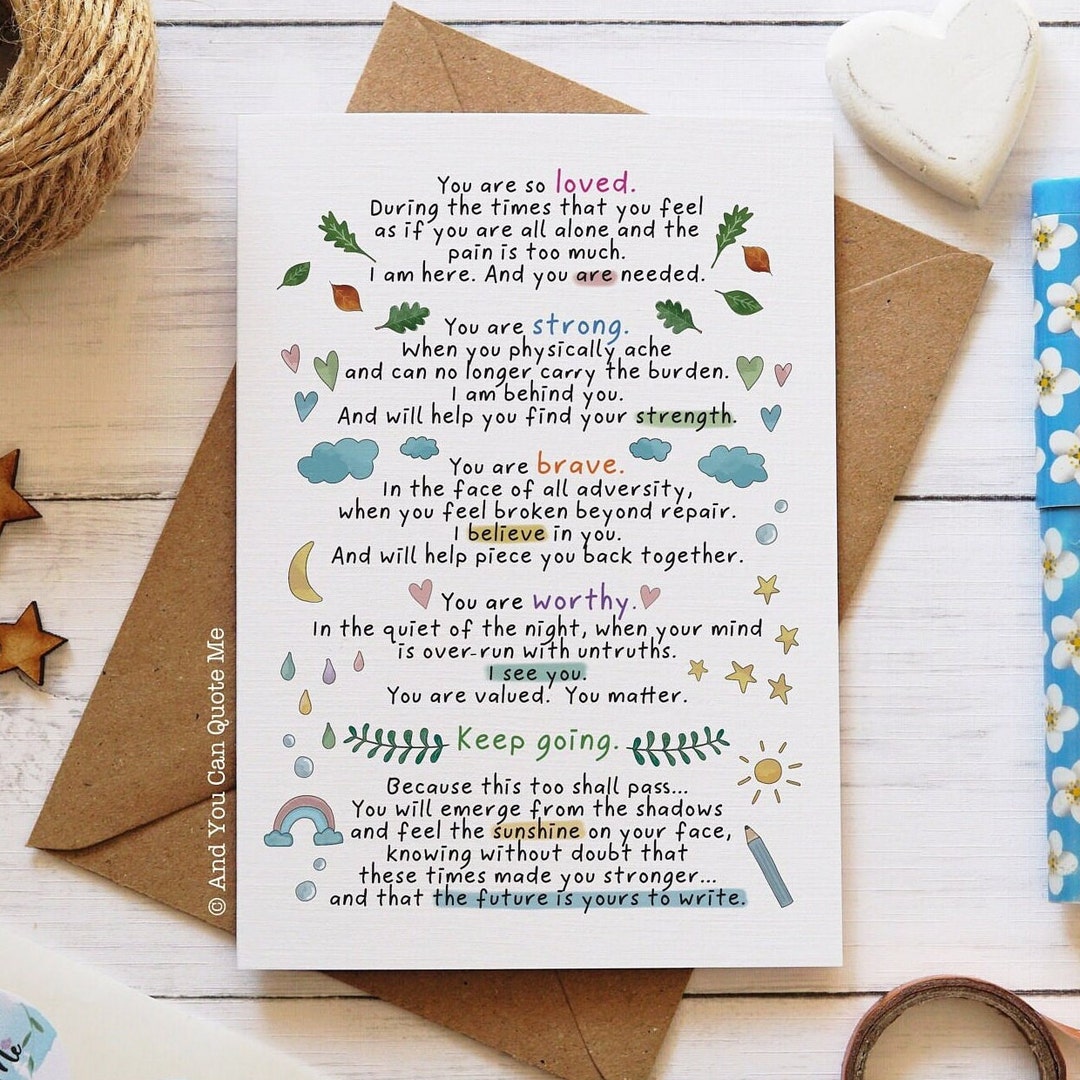 You are so loved.
During the times that you feel
as if you are all alone and the
pain is too much.
I am here. And you are needed.
You are strong.
When you physically ache
and can no longer carry the burden.
I am behind you.
And will help you find your strength.
You are brave.
In the face of all adversity,
when you feel broken beyond repair.
I believe in you.
And will help piece you back together.
You are worthy.
In the quiet of the night, when your mind
is over-run with untruths.
I see you.
You are valued. You matter.
Keep going.
Because this too shall pass...
You will emerge from the shadows
and feel the sunshine on your face,
knowing without doubt that
these times made you stronger...
and that the future is yours to write.
© And You Can Quote Me
Me